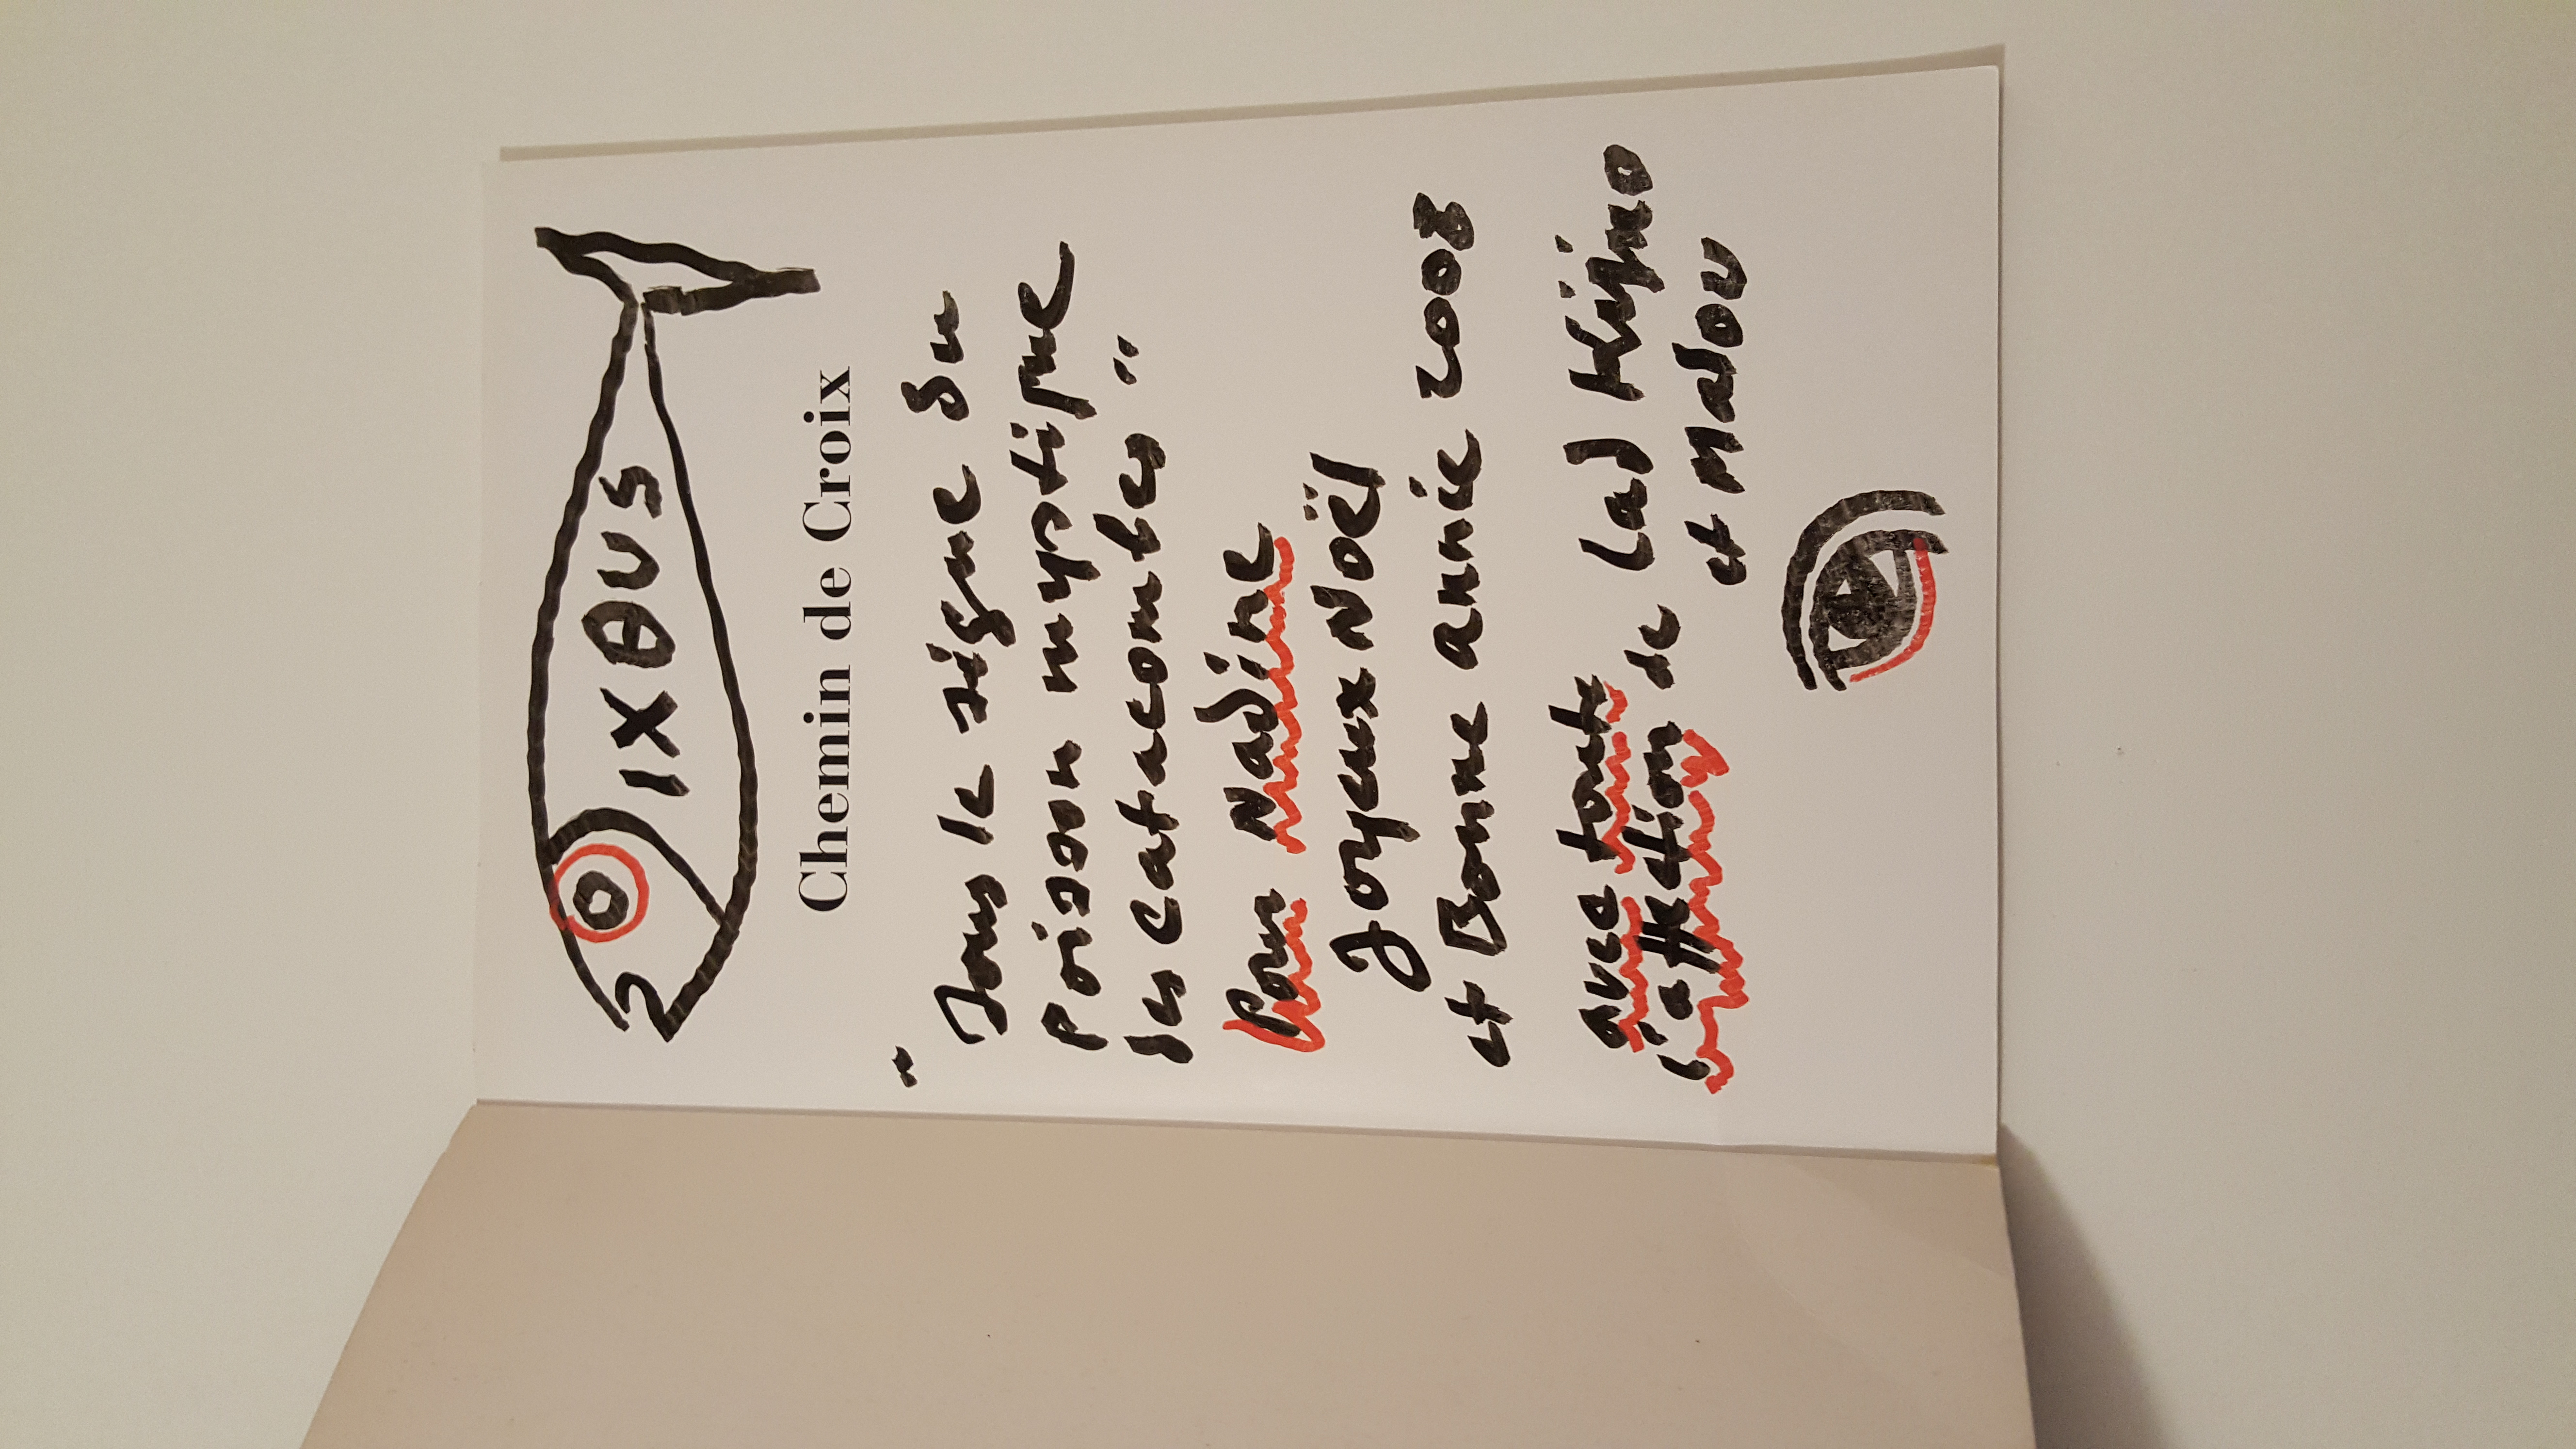 IXΘUS
Chemin de Croix
" Sous le signe du
Poisson mystique
des catacombes "
Pour Nadine
Joyeux Noël
et Bonne année 2008
avec toute
l'affection de Lad Kijno
et Malou